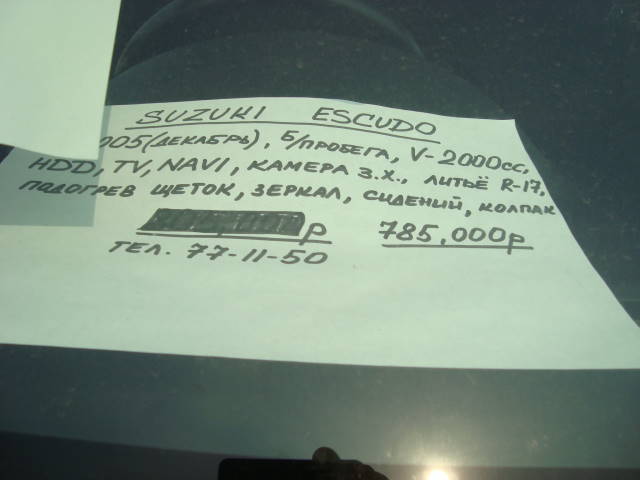 SUZUKI ESCUDO
005(ДЕКАБРЬ), Б/ПРОБЕГА, V-2000cc,
HDD, TV, NAVI, КАМЕРА З.Х., ЛИТЬЁ R-17,
ПОДОГРЕВ ЩЕТОК, ЗЕРКАЛ, СИДЕНИЙ, КОЛПАК
р 785.000р
ТЕЛ. 77-11-50